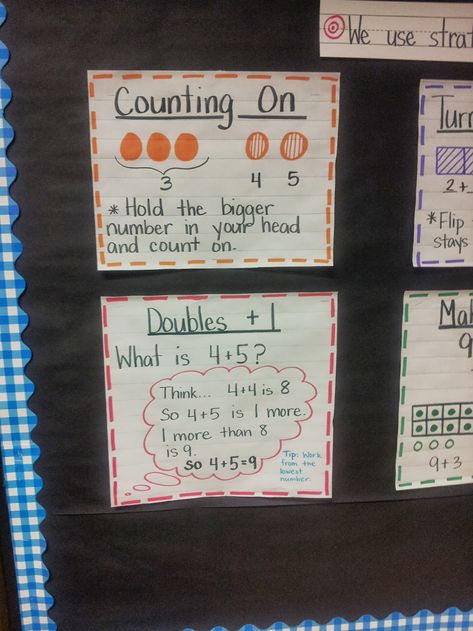 We use strat
Counting On
3 4 5
* Hold the bigger
number in your head
and count on.
Turn
2+
*Flip
stays
Doubles + 1
What is 4+5?
Think... 4+4 is 8
So 4+5 is 1 more.
1 more than 8
is 9.
so 4+5=9
Tip: Work
from the
lowest
number.
Mak
9
9+3